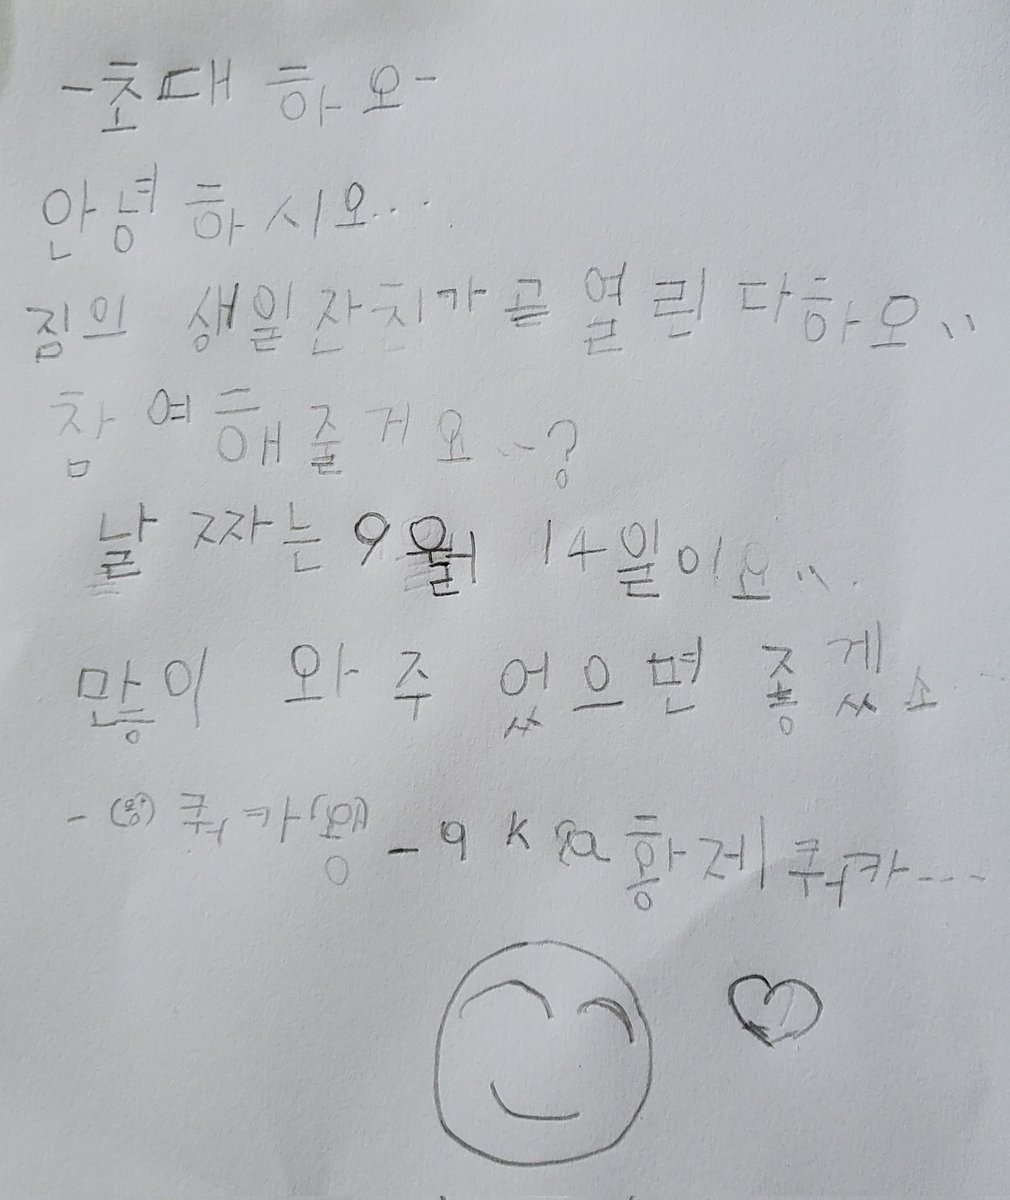 -초대 하오-
안녕 하시오...
짐의 생일잔치가 곧 열린 다하오..
참여해줄게요..?
날짜는 9월 14일이오...
만흥이 와주었으면 죻겠소...
쿼카 - 황제쿼카...